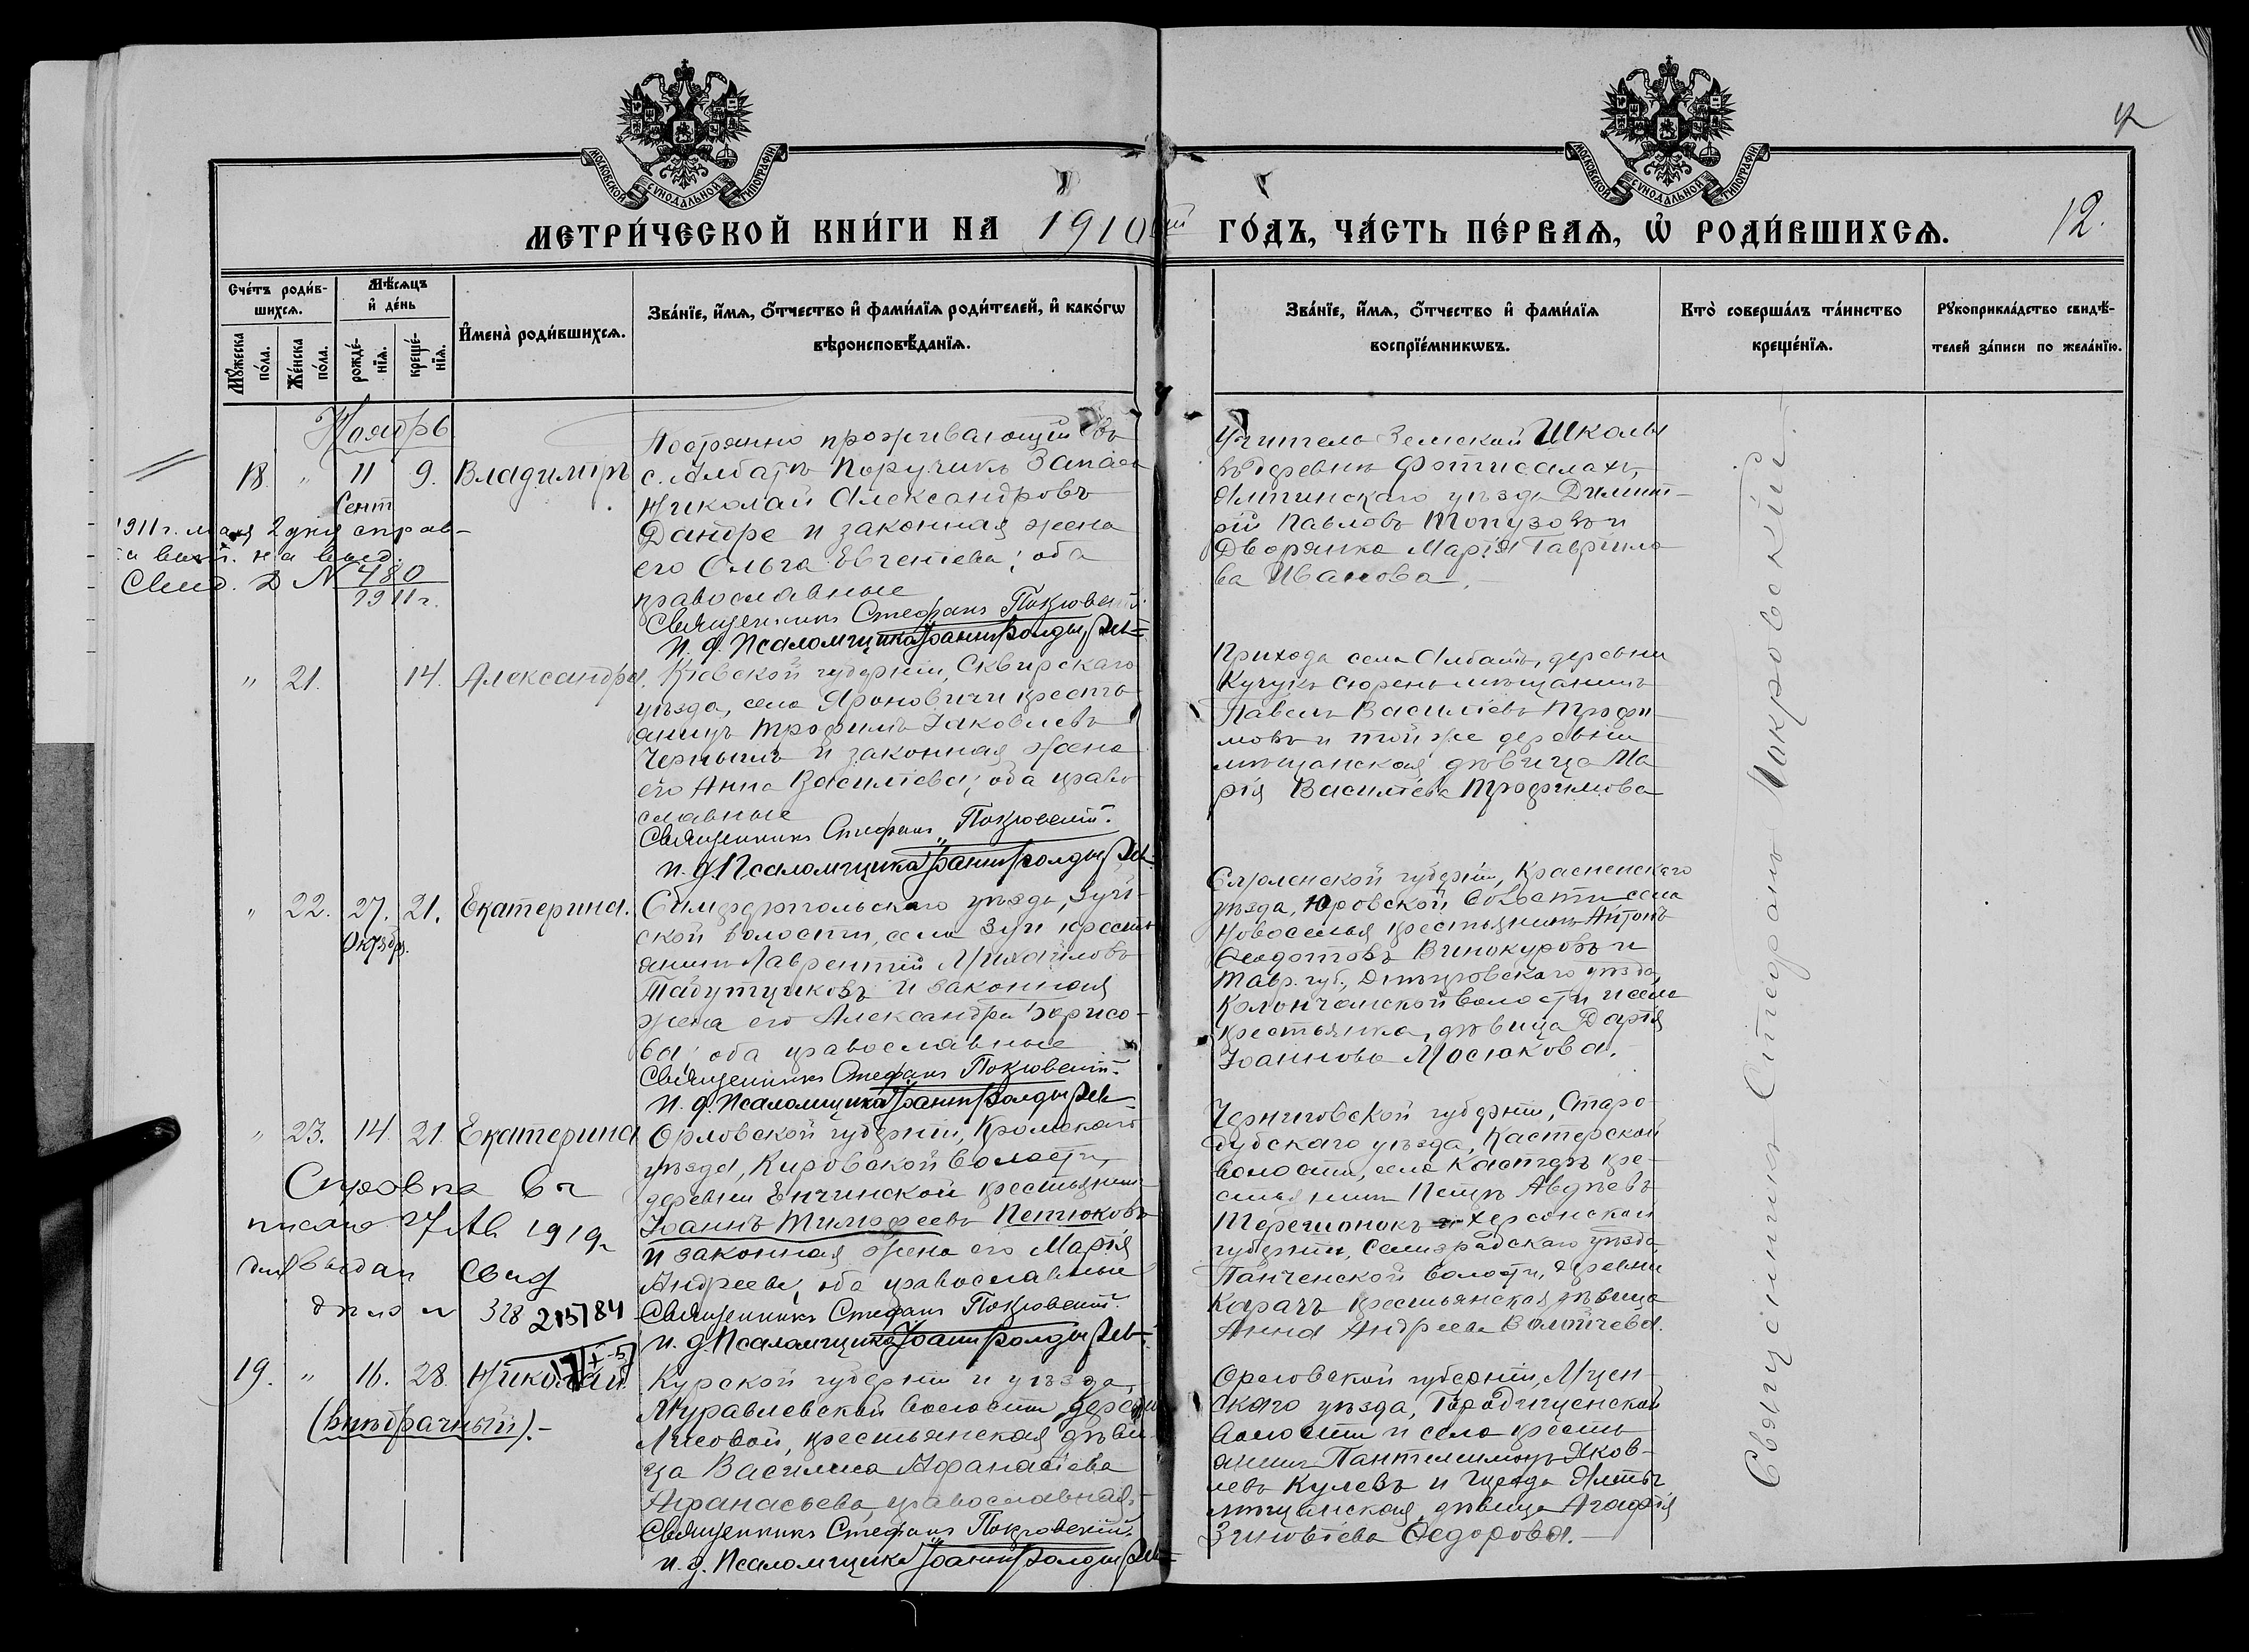 МОСКОВСКОЙ СѴНОДАЛЬНОЙ ТИПОГРАФІИ
МОСКОВСКОЙ СѴНОДАЛЬНОЙ ТИПОГРАФІИ
МЕТРИ́ЧЕСКОЙ КНИ́ГИ НА 1910ый ГО́ДЪ, ЧА́СТЬ ПЕ́РВАѦ, Ѽ РОДИ́ВШИХСѦ.
12.
Сче́тъ роди́в-
шихсѧ.
Мꙋ́жеска
по́ла.
Же́нска
по́ла.
Мѣ́сѧцъ
и҆ де́нь
рожде́-
нїѧ.
креще́-
нїѧ.
И҆мена̀ роди́вшихсѧ.
Зва́нїе, и҆́мѧ, ѻ҆́тчество и҆ фами́лїѧ роди́телей, и҆ како́гѡ
вѣроисповѣ́данїѧ.
Зва́нїе, и҆́мѧ, ѻ҆́тчество и҆ фами́лїѧ
воспрїе́мникѡвъ.
Кто̀ соверша́лъ та́инство
креще́нїѧ.
Рꙋкоприкла́дство свидѣ́-
телей за́писи по жела́нїю.
Ноябрь
18. " 11 9. Владиміръ
Сент
1911 г. мая 2 дня справ-
на выд.
Свид. № 480
1911 г.
Постоянно проживающій въ
с. Албатъ Поручикъ Запаса
Николай Александровъ
Дандре и законная жена
его Ольга Евгеніева; оба
православные
Священникъ Стефанъ Покровскій.
и. д. Псаломщика Іоаннъ
Учитель Земской Школы
въ деревнѣ Фотисалахъ,
Ялтинскаго уѣзда Димит-
рій Павловъ Топузовъ и
Дворянка Марія Гавріило
ва Иванова.
" 21. 14. Александра.
Кіевской губерніи, Сквирскаго
уѣзда, села Яроновичи кресть
янинъ Трофимъ Іаковлевъ
Чернышъ и законная жена
его Анна Василіева; оба право
славные
Священникъ Стефанъ Покровскій.
и. д. Псаломщика Іоаннъ
Прихода села Албатъ, деревни
Кучукъ Сюрень мѣщанинъ
Павелъ Василіевъ Трофи-
мовъ и той же деревни
мѣщанская дѣвица Ма
рія Василіева Трофимова
" 22. 27. 21. Екатерина.
Октбр.
Симферопольскаго уѣзда, Зуй-
ской волости, села Зуи кресть
янинъ Лаврентій Михайловъ
Табунщиковъ и законная
жена его Александра Борисо-
ва; оба православные
Священникъ Стефанъ Покровскій.
и. д. Псаломщика Іоаннъ
Смоленской губерніи, Красненскаго
уѣзда, Юровской Волости села
Новоселья крестьянинъ Антонъ
Ѳедотовъ Винокуровъ и
Тавр. губ., Днѣпровскаго уѣзда,
Колончакской волости и села
крестьянка, дѣвица Дарія
Іоаннова Мосюкова.
" 23. 14. 21. Екатерина
Справка вы
писано 27 Ав 1919 г
для выдач Свид
дѣло № 328 215184
Орловской губерніи, Кромскаго
уѣзда, Кировской волости,
деревни крестьянинъ
Іоаннъ Тимофеевъ Петюковъ
и законная жена его Марія
Андреева, оба православные
Священникъ Стефанъ Покровскій.
и. д. Псаломщика Іоаннъ
Черниговской губерніи, Старо-
дубскаго уѣзда, Кастерской
волости, села кре-
стьянинъ Петръ Авдѣевъ
и Херсонской
губерніи, Елисаградскаго уѣзда
Панченской волости, деревни
Карачъ крестьянская дѣвица
Анна Андреева
19. " 16. 28. Николай
(внѣбрачный).-
Курской губерніи и уѣзда,
Муравлевской волости, деревни
Лисовой, крестьянская дѣви-
ца Василиса Афанасіева
Афанасьева, православная.
Священникъ Стефанъ Покровскій.
и. д. Псаломщика Іоаннъ
Орловской губерніи, Мцен-
скаго уѣзда, Городищенской
волости и села кресть
янинъ Пантелимонъ Яков-
левъ Кулевъ и города Ялты
мѣщанская дѣвица Агафія
Зиновіева Ѳедорова.
Священникъ Стефанъ Покровскій.